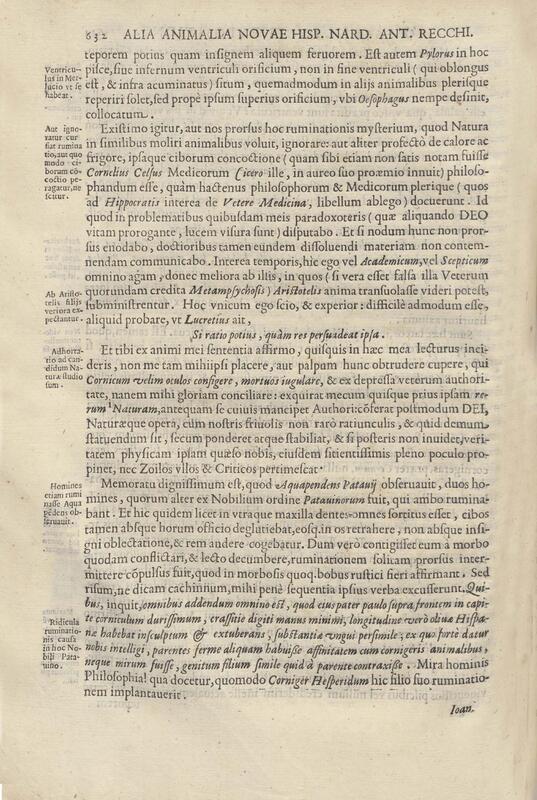 632 ALIA ANIMALIA NOVAE HISP. NARD. ANT. RECCHI.
teporem potius quam insignem aliquem feruorem. Est autem Pylorus in hoc
pisce, siue infernum ventriculi orificium, non in fine ventriculi (qui oblongus
est, & infra acuminatus) situm, quemadmodum in alijs animalibus plerisque
reperiri solet, sed propè ipsum superius orificium, vbi Oesophagus nempe desinit,
collocatum.
Ventricu-
lus in Mer-
lucio vt se
habeat.
Existimo igitur, aut nos prorsus hoc ruminationis mysterium, quod Natura
in similibus moliri animalibus voluit, ignorare: aut aliter profectò de calore ac
frigore, ipsaque ciborum concoctione (quam sibi etiam non satis notam fuisse
Cornelius Celsus Medicorum Cicero ille, in aureo suo proœmio innuit) philoso-
phandum esse, quàm hactenus philosophorum & Medicorum plerique (quos
ad Hippocratis interea de Vetere Medicina, libellum ablego) docuerunt. Id
quod in problematibus quibusdam meis paradoxoteris (quæ aliquando DEO
vitam prorogante, lucem visura sunt) disputabo. Et si nodum hunc non pror-
sus enodabo, doctioribus tamen eundem dissoluendi materiam non contem-
nendam communicabo. Interea temporis, hic ego vel Academicum, vel Scepticum
omnino agam, donec meliora ab illis, in quos (si vera esset falsa illa Veterum
quorundam credita Metampsychosis) Aristotelis anima transuolasse videri potest,
subministrentur. Hoc vnicum ego scio, & experior: difficilè admodum esse,
aliquid probare, vt Lucretius ait,
Aut igno-
ratur cur
fiat rumina
tio, aut quo
modo ci-
borum cō-
coctio pe-
ragatur, ne
scitur.
Ab Aristo-
telis filijs
veriora ex-
pectantur.
Si ratio potius, quàm res persuadeat ipsa.
Et tibi ex animi mei sententia affirmo, quisquis in hæc mea lecturus inci-
deris, non me tam mihiipsi placere, aut palpum hunc obtrudere cupere, qui
Cornicum velim oculos configere, mortuos iugulare, & ex depressa veterum authori-
tate, nanem mihi gloriam conciliare: exquirat mecum quisque prius ipsam re-
rum Naturam, antequam se cuiuis mancipet Authori: cōferat postmodum DEI,
Naturæque opera, cum nostris friuolis non rarò ratiunculis, & quid demum
statuendum sit, secum ponderet atque stabiliat, & si posteris non inuidet, veri-
tatem physicam ipsam quæso nobis, eiusdem sitientissimis pleno poculo pro-
pinet, nec Zoilos vllos & Criticos pertimescat.
Adhorta-
tio ad can-
didum Na-
turæ studio
sum.
Memoratu dignissimum est, quod Aquapendens Patauij obseruauit, duos ho-
mines, quorum alter ex Nobilium ordine Patauinorum fuit, qui ambo rumina-
bant. Et hic quidem licet in vtraque maxilla dentes omnes sortitus esset, cibos
tamen absque horum officio deglutiebat, eosq. in os retrahere, non absque insi-
gni oblectatione, & rem andere cogebatur. Dum verò contigisset eum à morbo
quodam conflictari, & lecto decumbere, ruminationem solitam prorsus inter-
mittere cōpulsus fuit, quod in morbosis quoq. bobus rustici fieri affirmant. Sed
risum, ne dicam cachinnum, mihi penè sequentia ipsius verba excusserunt. Qui-
bus, inquit, omnibus addendum omnino est, quod eius pater paulo supra frontem in capi-
te corniculum durissimum, crassitie digiti manus minimi, longitudine verò oliuæ Hispa-
næ habebat insculptum & extuberans, substantiæ vngui persimile; ex quo fortè datur
nobis intelligi, parentes ferme aliquam habuisse affinitatem cum cornigeris animalibus,
neque mirum fuisse, genitum filium simile quid à parente contraxisse. Mira hominis
Philosophia! qua docetur, quomodo Corniger Hesperidum hic filio suo ruminatio-
nem implantauerit.
Homines
etiam rumi
nasse Aqua
pēdens ob-
seruauit.
Ridicula
ruminatio-
nis causa
in hoc No-
bili Pata-
uino.
Ioan.